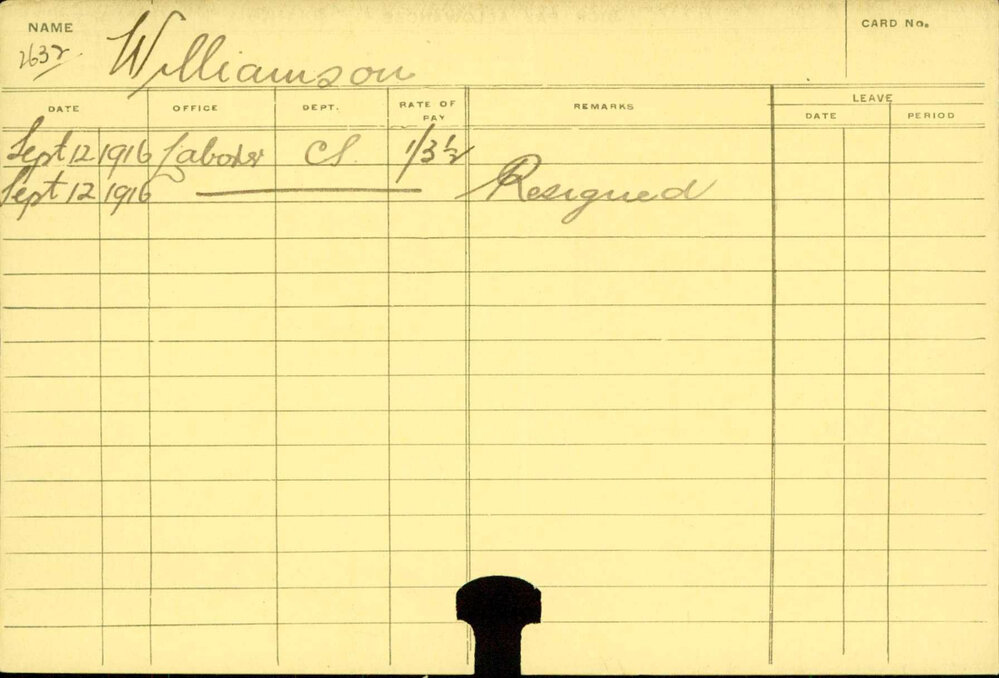 NAME Williamson CARD No.
2632
DATE OFFICE DEPT. RATE OF PAY REMARKS LEAVE
DATE PERIOD
Sept 12 1916 Laborer CS. 1/3½
Sept 12 1916 Resigned